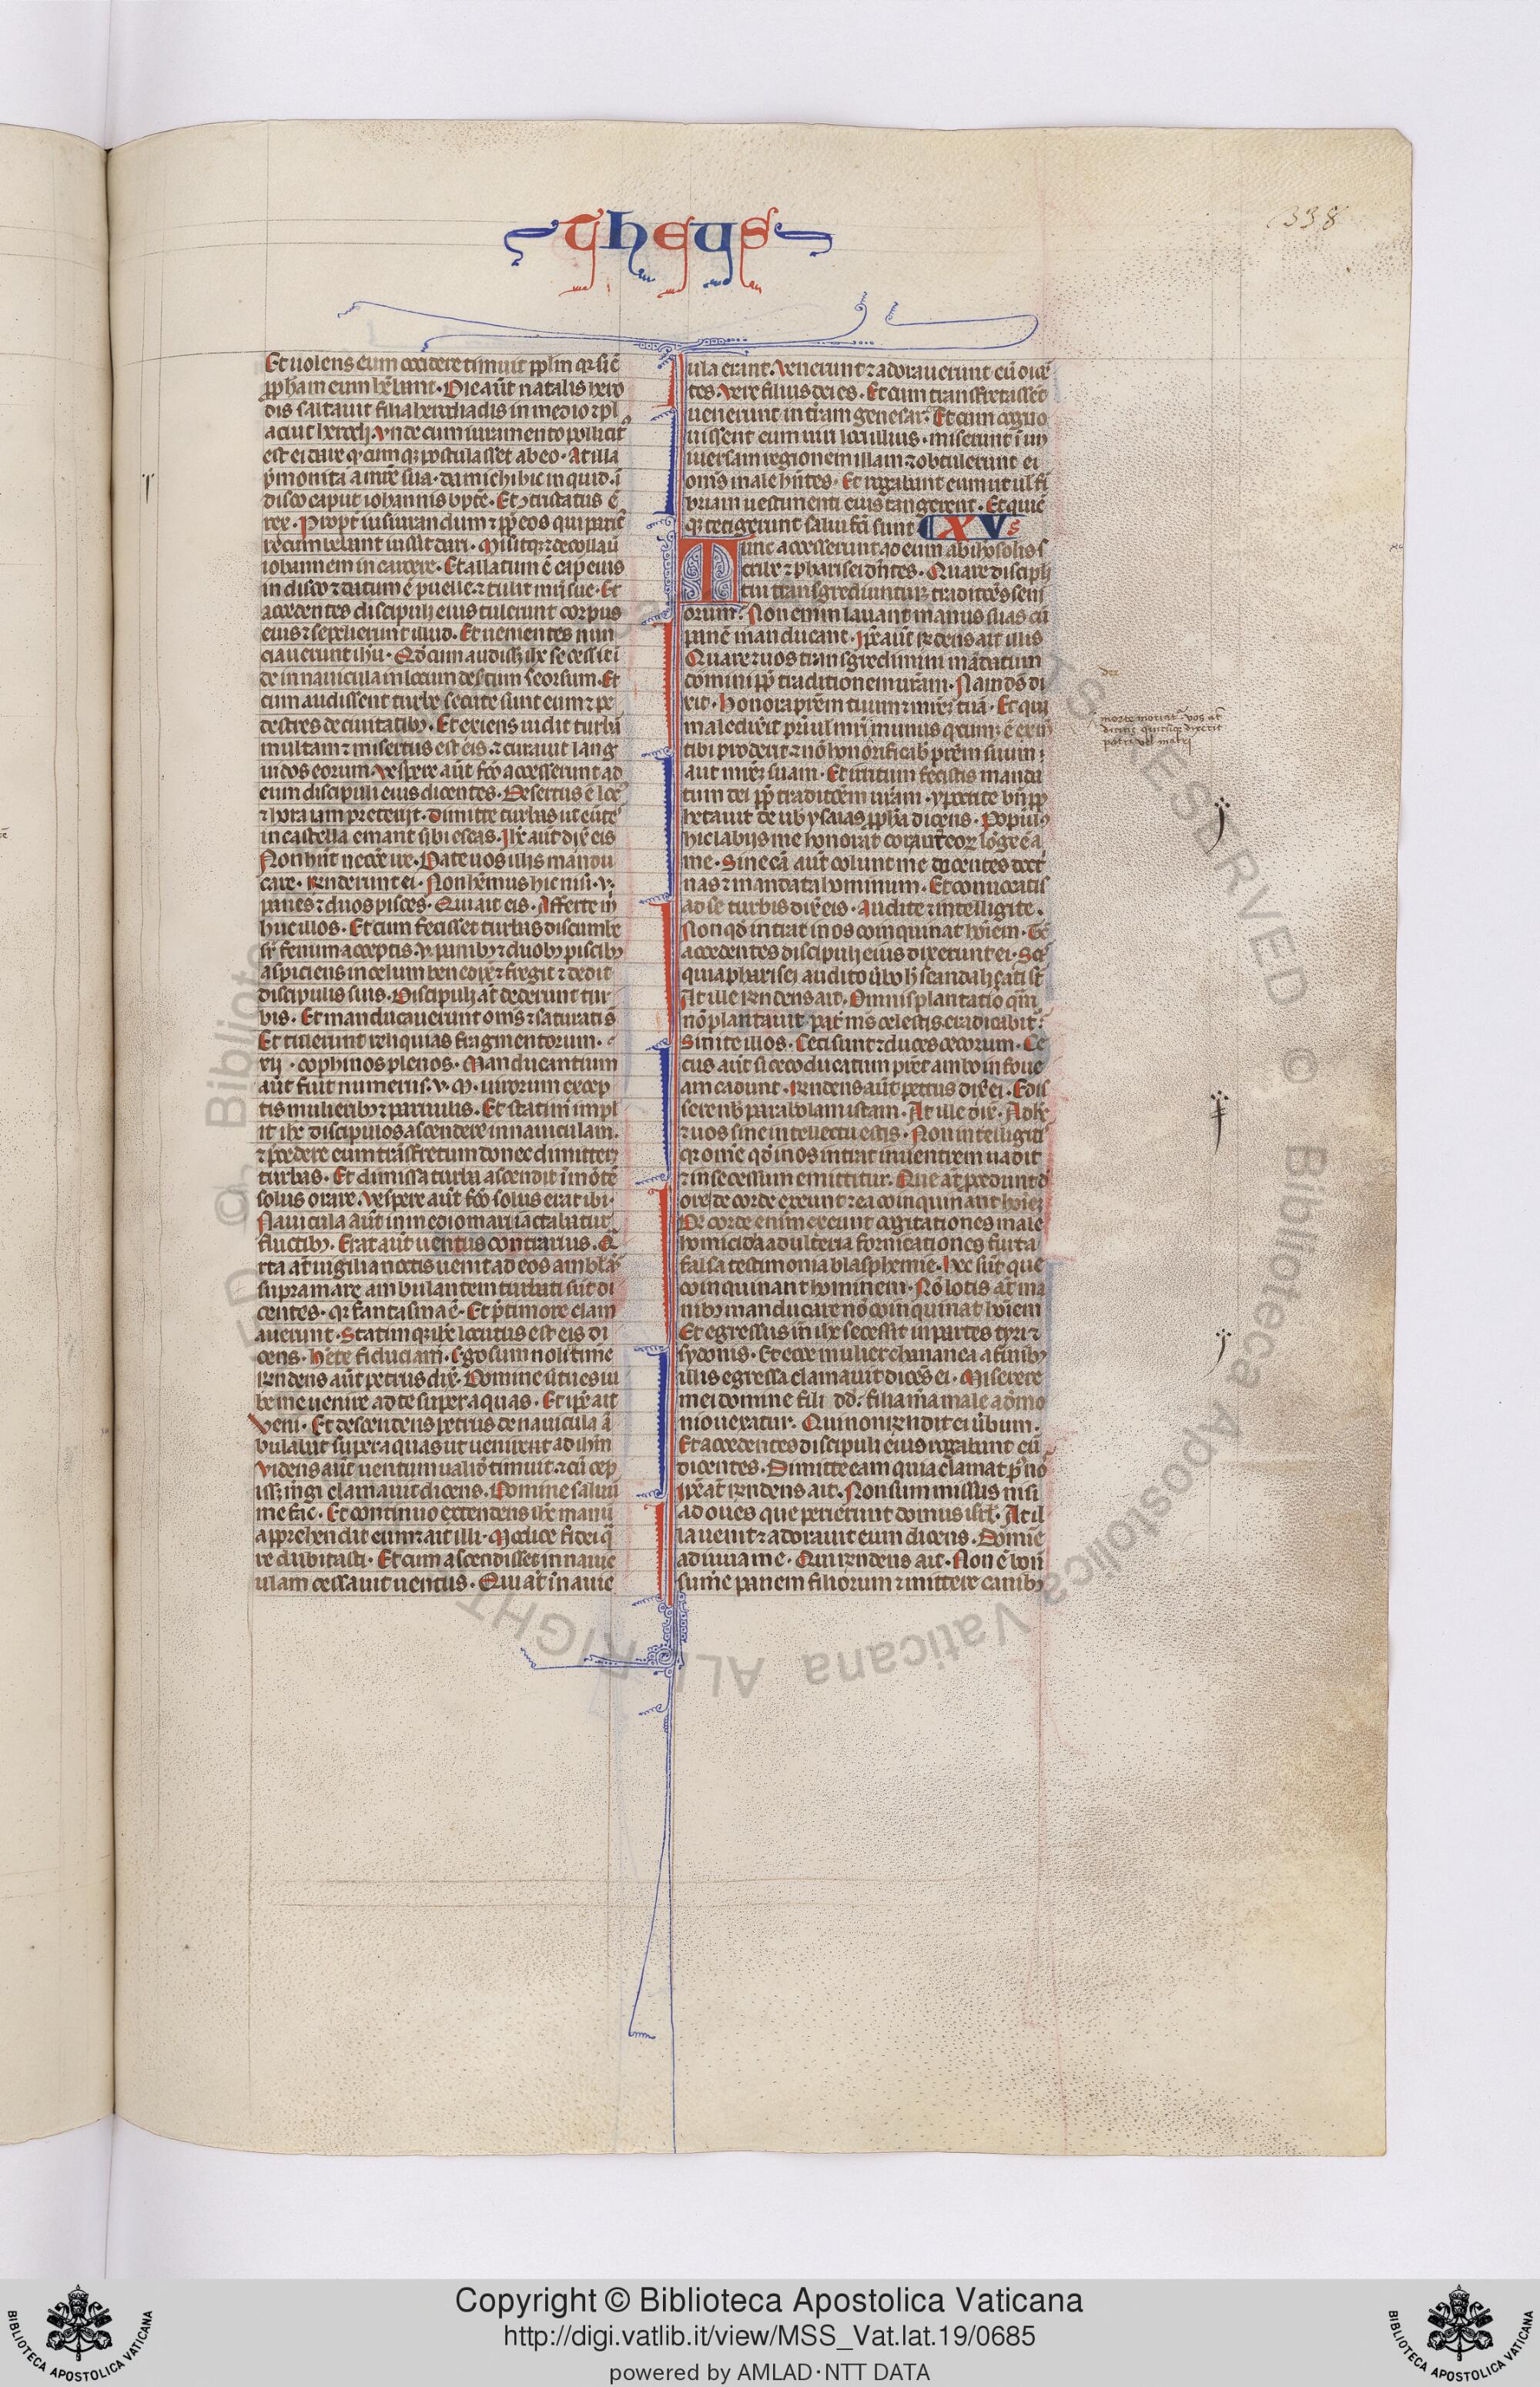 theus
338
Et uolens eum occidere timuit pplm qr sic̄
ppham eum hēbant. Die aūt natalis hero
dis saltauit filia herodiadis in medio ⁊ pl
acuit herodi. Vnde cum iuramento pollicit᷒
est ei dare q̄cumq̨ postulasset ab eo. At illa
p̄monita a mr̄e sua. da michi hic inquid. ī
disco caput iohannis bpt̄e. Et ↄtristatus ē
rex. Propt̄ iusiurandum ⁊ pp̄ eos qui parit̄
recumbebant iussit dari. Misitq̨ ⁊ decollauī
iohannem in carcere. Et allatum ē cap̄ eius
in disco ⁊ datum ē puelle. ⁊ tulit mr̄i sue. Et
accedentes discipuli eius tulerunt corpus
eius ⁊ sepelierunt illud. Et uenientes nun
ciauerunt ihū. Qd̄ cum audiss̄ ihc secessit ī
de in nauicula in locum desertum seorsum. Et
cum audissent turbe secute sunt eum ⁊ pe
destres de ciuitatib᷒. Et exiens uidit turbā
multam ⁊ misertus est eis. ⁊ curauit lang
uidos eorum. Vespere aūt fc̄o accesserunt ad
eum discipuli eius dicentes. Desertus ē loc᷒
⁊ hora iam preteriit. dimitte turbas ut eūte᷒
in castella emant sibi escas. Ihc aūt dix̄ eis
Non hn̄t necc̄e ire. Date uos illis mandu
care. Rn̄derunt ei. Non hēmus hic nisi .v.
panes ⁊ duos pisces. Qui ait eis. Afferte m̄
huc illos. Et cum iecisset turbas discumbe
sr̄ fenum acceptis .v. panib᷒ ⁊ duob᷒ piscib᷒
aspiciens in celum benedix̄ ⁊ fregit ⁊ dedit
discipulis suis. Discipuli at̄ dederunt tur
bis. Et manducauerunt om̄s ⁊ saturati s̄
Et tulerunt reliquias fragmentorum.
xij. cophinos plenos. Manducantium
aūt fuit numerus .v. M. uirorum excep
tis mulierib᷒ ⁊ paruulis. Et statim ↄmpl
it ihc discipulos ascendere in nauiculam.
⁊ p̄cedere eum trāsfretum donec dimitteꝫ
turbas. Et dimissa turba ascendit ī mōtē
solus orare. Vespere aūt fc̄o solus erat ibi.
Nauicula aūt in medio mari iactabatur
fluctib᷒. Erat aūt uentus contrarius. Q̄
rta at̄ uigilia noctis uenit ad eos ambl̄ās
supra mare ambulantem turbati sūt di
centes. qr fantasma ē. Et p̄ timore clam
auerunt. Statimq̨ ihc locutus est eis di
cens. Hēte fiduciam. Ego sum nolitime
Rn̄dens aūt petrus dix̄. Domine si tu es iu
be me uenire ad te super aquas. Et ip̄e ait
Veni. Et descendens petrus de nauicula ā
bulabat super aquas ut ueniret ad ihm
Videns aūt uentum ualid̄ timuit. ⁊ cū cep
iss̄ mgi clamauit dicens. Domine saluū
me fac̄. Et continuo extendens ihc manū
apprehendit eum ⁊ ait illi. Modice fidei q̄
re dubitasti. Et cum ascendisset in nauic
ulam cessauit uentus. Qui at̄ in nauic
ula erant. Venerunt ⁊ adorauerunt eū dicē
tes. Vere filius dei es. Et cum transfretassēt
uenerunt in tr̄am genesar. Et cum cogno
uissent eum uiri loci illius. miserunt ī un
iuersam regionem illam ⁊ obtulerunt ei
om̄s male hn̄tes. Et rogabant eum ut ul̄ fi
briam uestimenti eius tangerent. Et quic̄
q̨ tetigerunt salui fc̄i sunt. C XV
Tunc accesserunt ad eum ab ihrosolis s
cribe ⁊ pharisei dn̄tes. Quare discipli
tui transgrediuntur traditōes seni
orum. Non enim lauant manus suas cū
panē manducant. Ip̄e aūt rn̄dens ait illis
Quare ⁊ uos transgredimini mandatum
domini pp̄ traditionem uram. Nam ds̄ di
xit. Honora pr̄em tuum ⁊ mr̄eꝫ tuā. Et qui
maledixit pr̄i ul̄ mr̄i munus qcumq̨ ē ex m̄
tibi proderit ⁊ nō honorificab̄ pr̄em suum
aut mr̄eꝫ suam. Et irritum fecistis manda
tum dei pp̄ traditōem uram. ypocrite bn̄ pp
hetauit de uob̄ ysaias ppha dicens. Popul᷒
hic labijs me honorat cor aut̄ eoꝝ lōge ē a
me. Sine cā aut̄ colunt me docentes doct
nas ⁊ mandata hominum. Et conuocatis
ad se turbis dix̄ eis. Audite ⁊ intelligite.
Non qd̄ intrat in os coinquinat hoīem. Tc̄
accedentes discipuli eius dixerunt ei. Sc̄s
quia pharisei audito ūbo h̄ scandaliꝫati st̄
At ille rn̄dens ait. Omnis plantatio qm̄
nō plantauit pat̄ ms̄ celestis eradicabit᷒.
Sinite illos. Ceci sunt ⁊ duces cecorum. Ce
cus aūt si ceco ducatum pret̄ ambo in foue
am cadunt. Rn̄dens aūt petrus dix̄ ei. Edis
sere nb̄ parabolam istam. At ille dix̄. Adhc̄
⁊ uos sine intellectu estis. Non intelligiti᷒
qr om̄e qd̄ in os intrat in uentrem uadit
⁊ in secessum emittitur. Que at̄ p̄cedunt d̄
ore de corde exeunt ⁊ ea coinquinant hoīeꝫ
De corde enim exeunt cogitationes male
homicidia adulteria fornicationes furta
falsa testimonia blasphemie. Hec sūt que
coinquinant hominem. Nō lotis at̄ ma
nib᷒ manducare nō coinquinat hoīem
Et egressus īn ihc secessit in partes tyri ⁊
sydonis. Et ecce mulier chananea a finib᷒
illis egressa clamauit dicēs ei. Miserere
mei domine fili dd̄. filia m̄a male a dmo
nio uexatur. Qui non rn̄dit ei ūbum.
Et accedentes discipuli eius rogabant eū
dicentes. Dimitte eam quia clamat p̄ nō
Ip̄e at̄ rn̄dens ait. Non sum missus nisi
ad oues que perierunt domus isrl̄. At il
la uenit ⁊ adorauit eum dicens. Domīe
adiuua me. Qui rn̄dens ait. Non ē bonū
sum̄e panem filiorum ⁊ mittere canib᷒
morte moriat᷒. vos at̄
dicitis quicumq̨ dixerit
patri vel matri
Copyright © Biblioteca Apostolica Vaticana
http://digi.vatlib.it/view/MSS_Vat.lat.19/0685
powered by AMLAD·NTT DATA
BIBLIOTECA APOSTOLICA VATICANA
BIBLIOTECA APOSTOLICA VATICANA